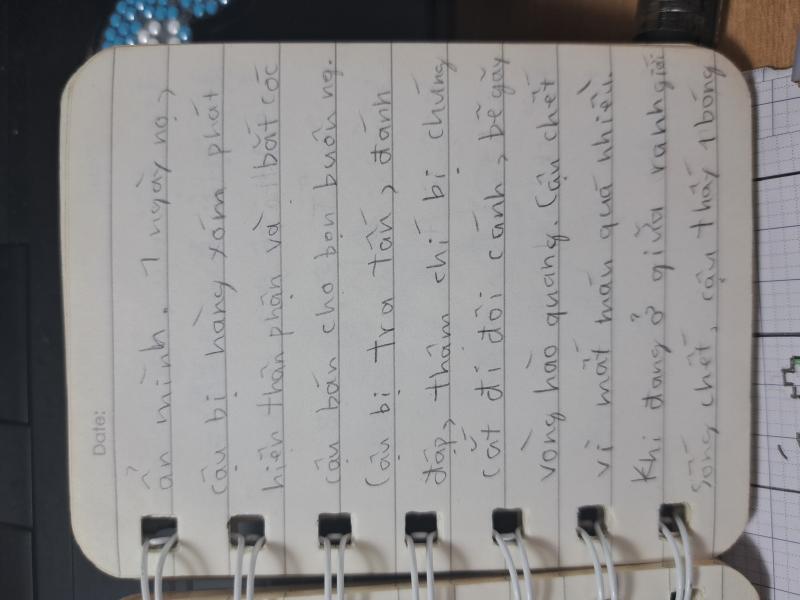 Date:
ẩn mình. 1 ngày nọ,
cậu bị hàng xóm phát
hiện thân phận và bắt cóc
cậu bán cho bọn buôn ng.
Cậu bị tra tấn, đánh
đập, thậm chí bị chúng
cắt đi đôi cánh, bẻ gãy
vòng hào quang. Cậu chết
vì mất máu quá nhiều.
Khi đang ở giữa ranh giới
sống chết, cậu thấy 1 bóng